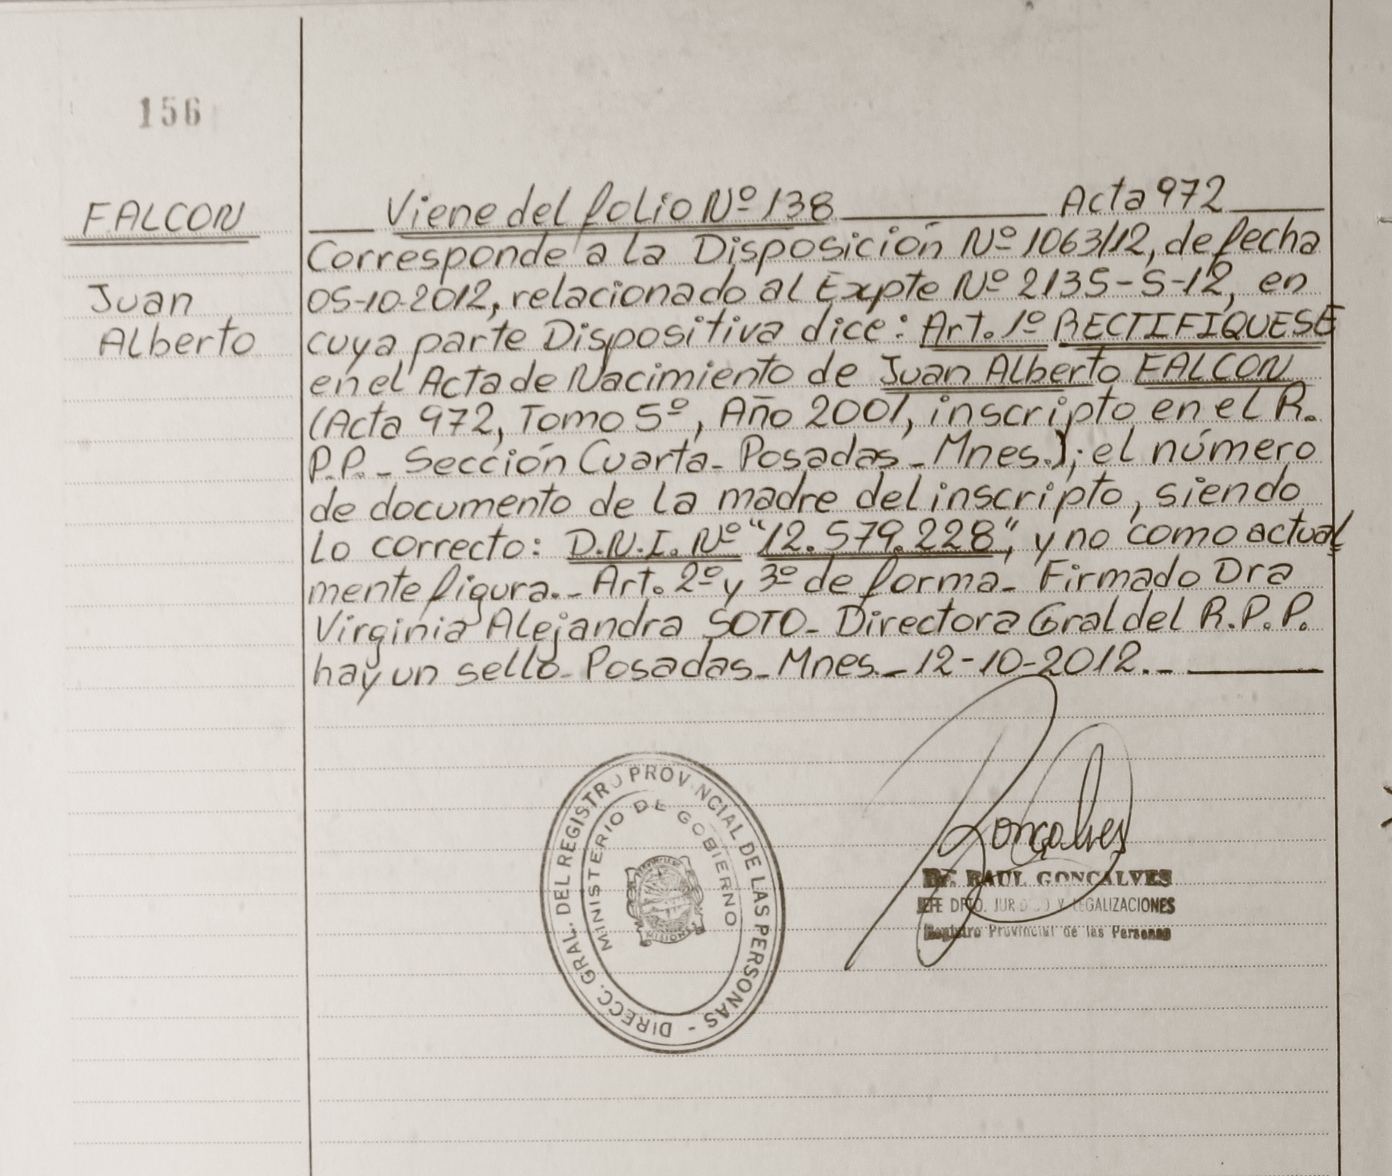 156
FALCON
Juan
Alberto
Viene del folio Nº 138 Acta 972
Corresponde a la Disposición Nº 1063/12, de fecha
05-10-2012, relacionado al Expte Nº 2135-S-12, en
cuya parte Dispositiva dice: Art. 1º RECTIFIQUESE
en el Acta de Nacimiento de Juan Alberto FALCON
(Acta 972, Tomo 5º, Año 2001, inscripto en el R.
P.P._ Sección Cuarta_ Posadas_ Mnes.); el número
de documento de la madre del inscripto, siendo
lo correcto: D.N.I. Nº "12.579.228", y no como actual
mente figura._ Art. 2º y 3º de forma_ Firmado Dra
Virginia Alejandra SOTO_ Directora Gral del R.P.P.
hay un sello_ Posadas_ Mnes._ 12-10-2012._
DIRECC. GRAL. DEL REGISTRO PROVINCIAL DE LAS PERSONAS -
MINISTERIO DE GOBIERNO
MISIONES
Gonçalves
Dr. RAUL GONCALVES
JEFE DPTO. JURIDICO Y LEGALIZACIONES
Registro Provincial de las Personas